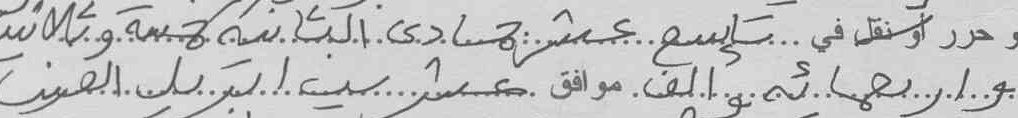 و حرر أو نقل في تاسع عشر جمادى الثانية خمسة وثلاثين
وأربعمائه وألف موافق عشرين ابريل